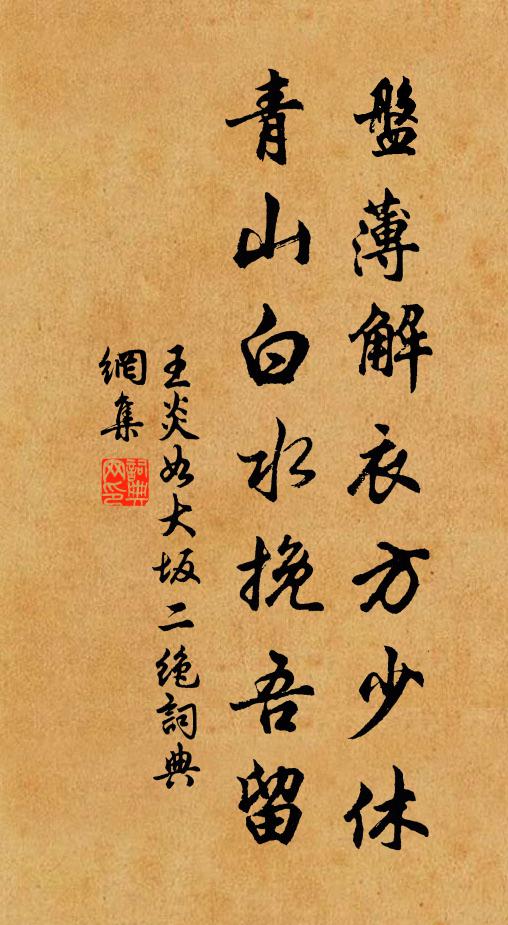 盤薄解衣方少休
青山白水挽吾留
王炎如大坂二絶詞典
網集
詞典
网印